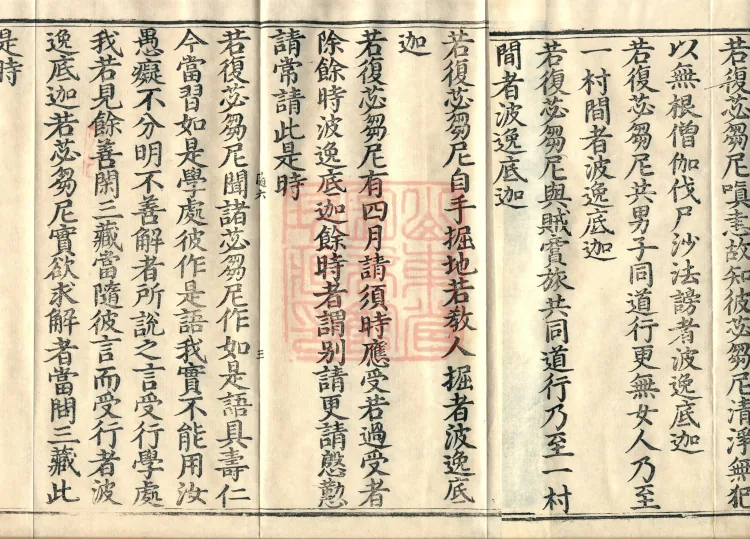 若復苾芻尼嗔恚故知彼苾芻尼清淨無犯
以無根僧伽伐尸沙法謗者波逸底迦
若復苾芻尼共男子同道行更無女人乃至
一村間者波逸底迦
若復苾芻尼與賊賣旅共同道行乃至一村
間者波逸底迦
若復苾芻尼自手掘地若教人掘者波逸底
迦
若復苾芻尼有四月請須時應受若過受者
除餘時波逸底迦餘時者謂别請更請慇懃
請常請此是時
三
若復苾芻尼聞諸苾芻尼作如是語具壽仁
今當習如是學處彼作是語我實不能用汝
愚癡不分明不善解者所說之言受行學處
我若見餘善閑三藏當隨彼言而受行者波
逸底迦若苾芻尼實欲求解者當問三藏此
是時